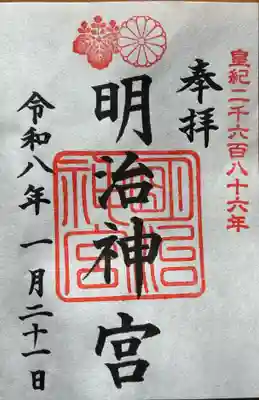 皇紀二千六百八十六年
奉拝
明治神宮
明治神宮
令和八年 一月二十一日